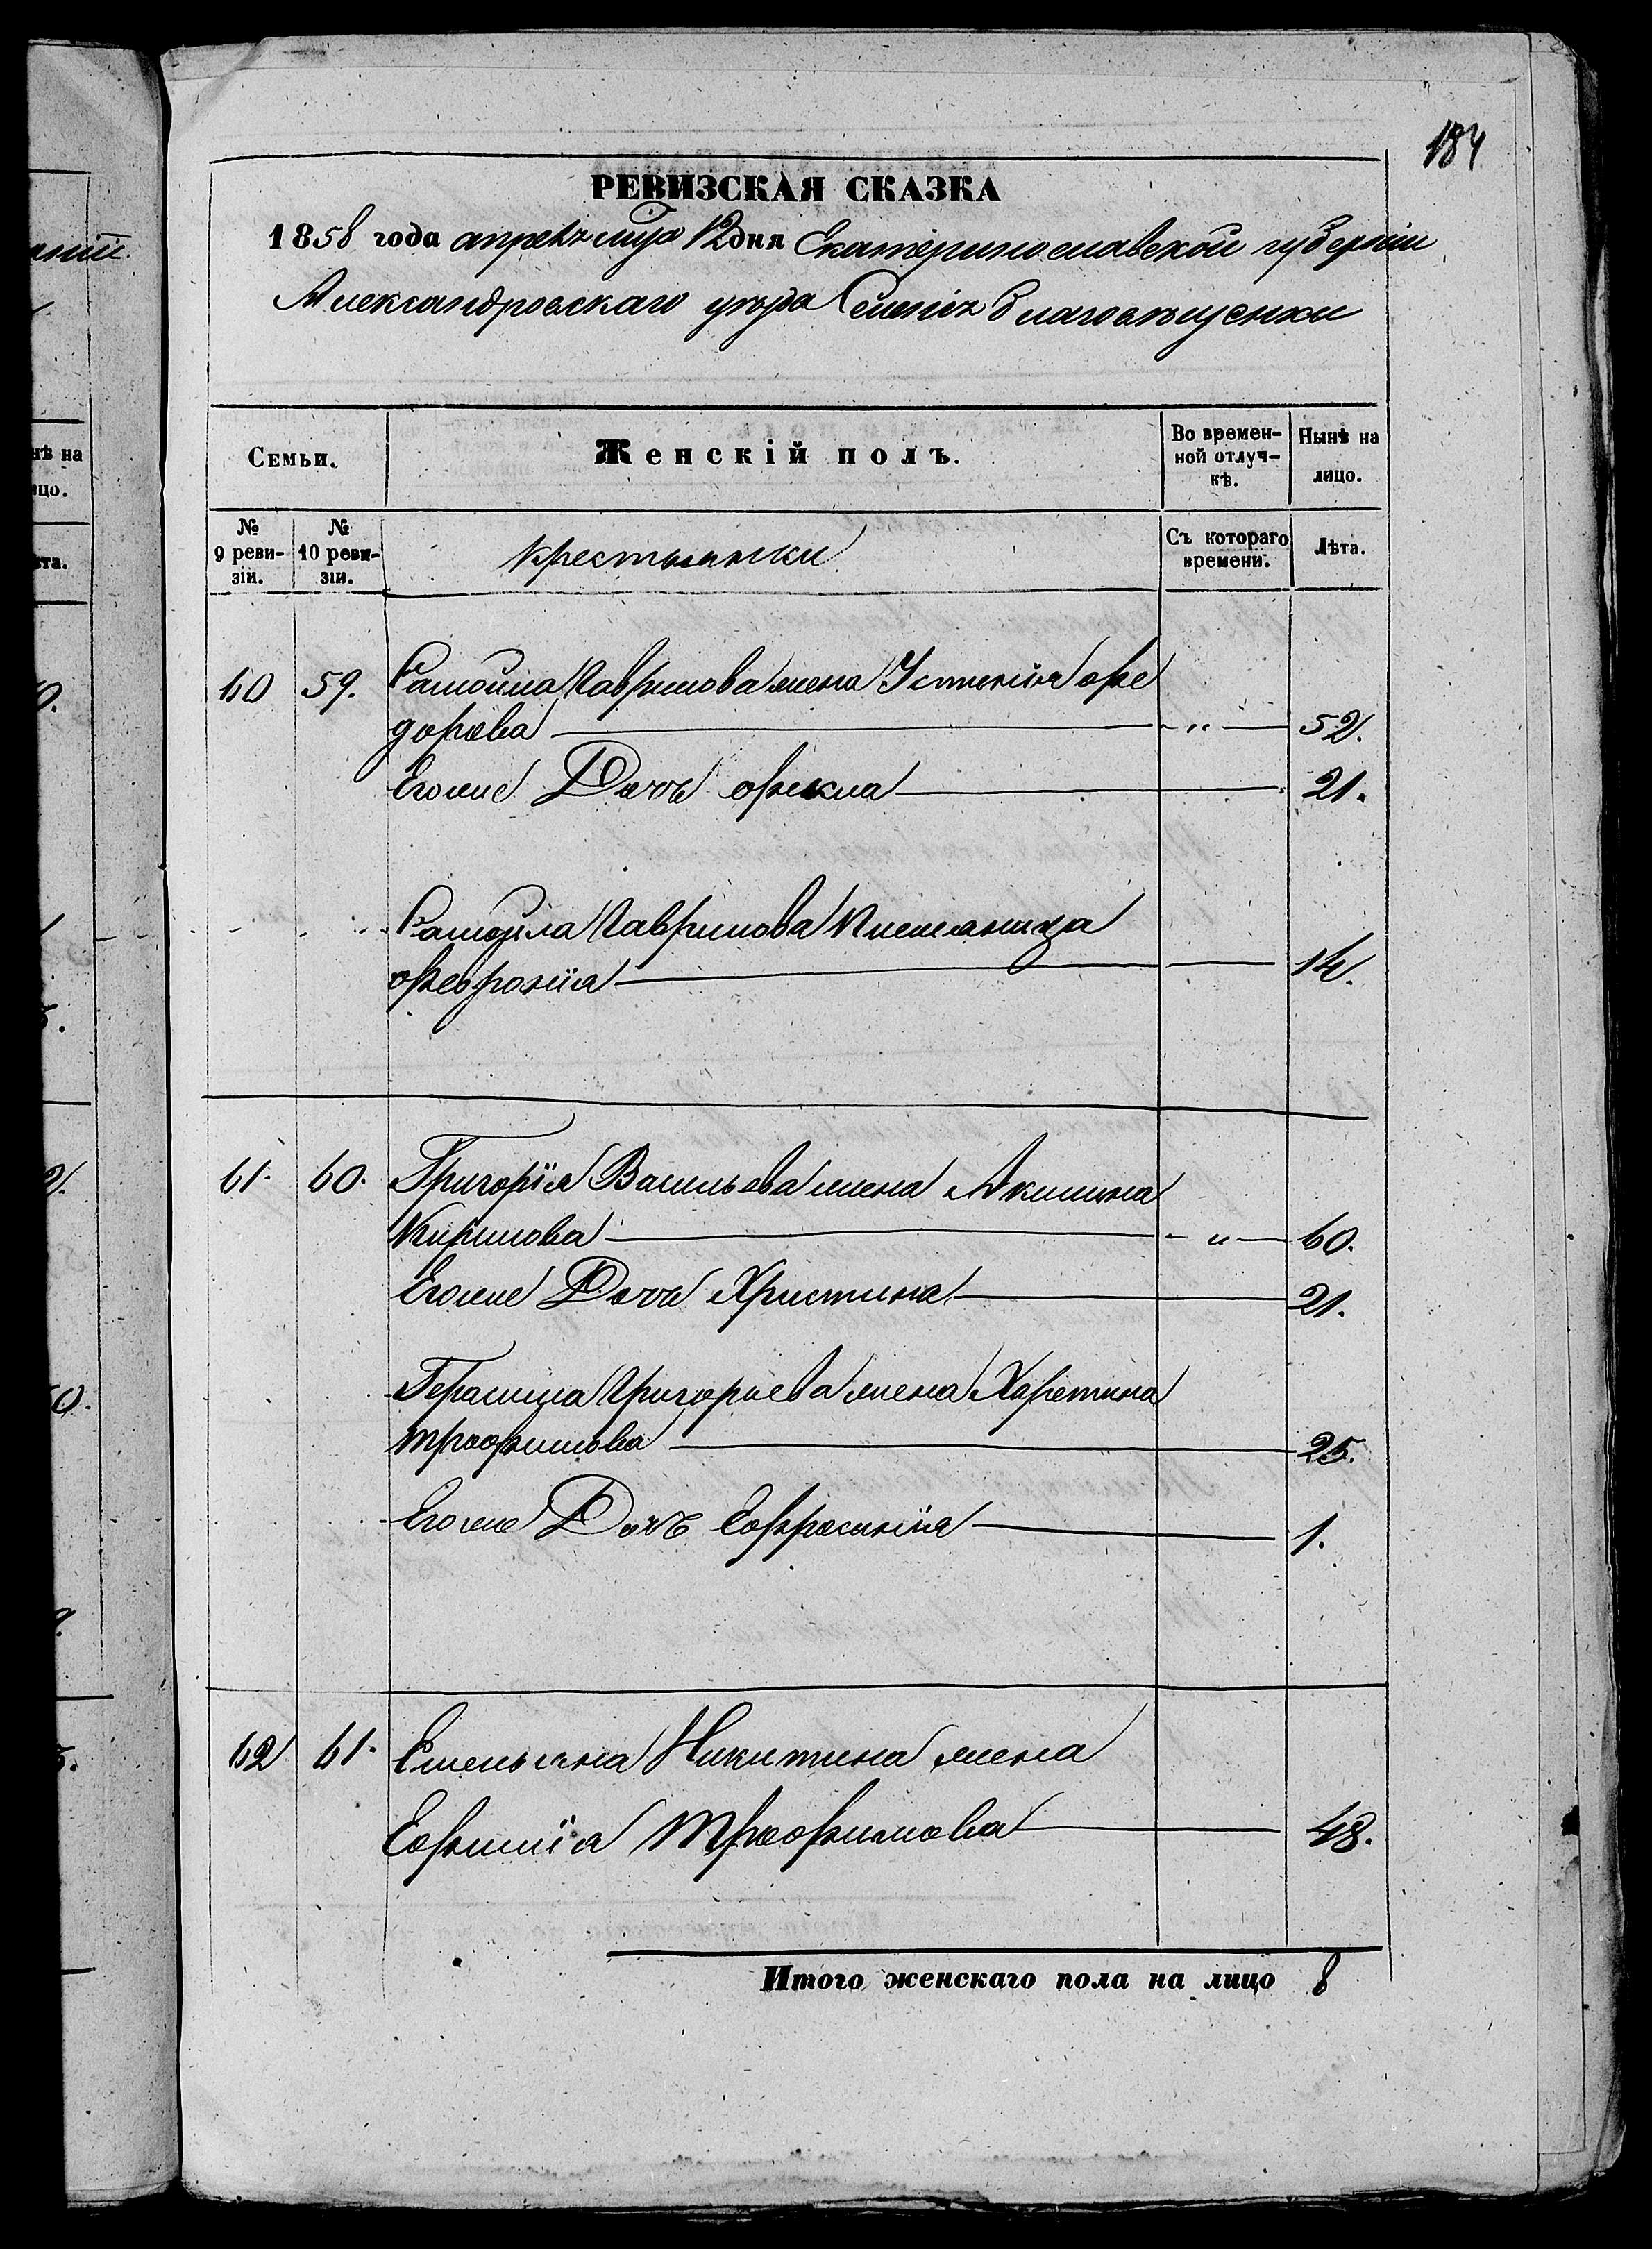 184
РЕВИЗСКАЯ СКАЗКА
1858 года апреля мца 12 дня Екатеринославской губерніи
Александровскаго уезда Селенія Благовещенки
Семьи.
Женскій полъ.
Во времен-
ной отлуч-
кѣ.
Нынѣ на
лицо.
№
9 реви-
зіи.
№
10 реви-
зіи.
крестьянки
Съ котораго
времени.
Лѣта.
60 59. Самойла Гаврилова жена Устинія Фе
дорова " 52.
Егоже Дочь Фекла 21.
Самойла Гаврилова племяница
Феврония 14.
61. 60. Григорія Васильева жена Акилина
Кирилова " 60.
Егоже Дочь Христина 21.
Герасима Григорьева жена Харетина
Трофимова 25.
Егоже Дочь Ефросинія 1.
62 61. Емельяна Никитина жена
Ефимія Трофимова 48.
Итого женскаго пола на лицо 8
нѣ на
ицо.
ѣта.